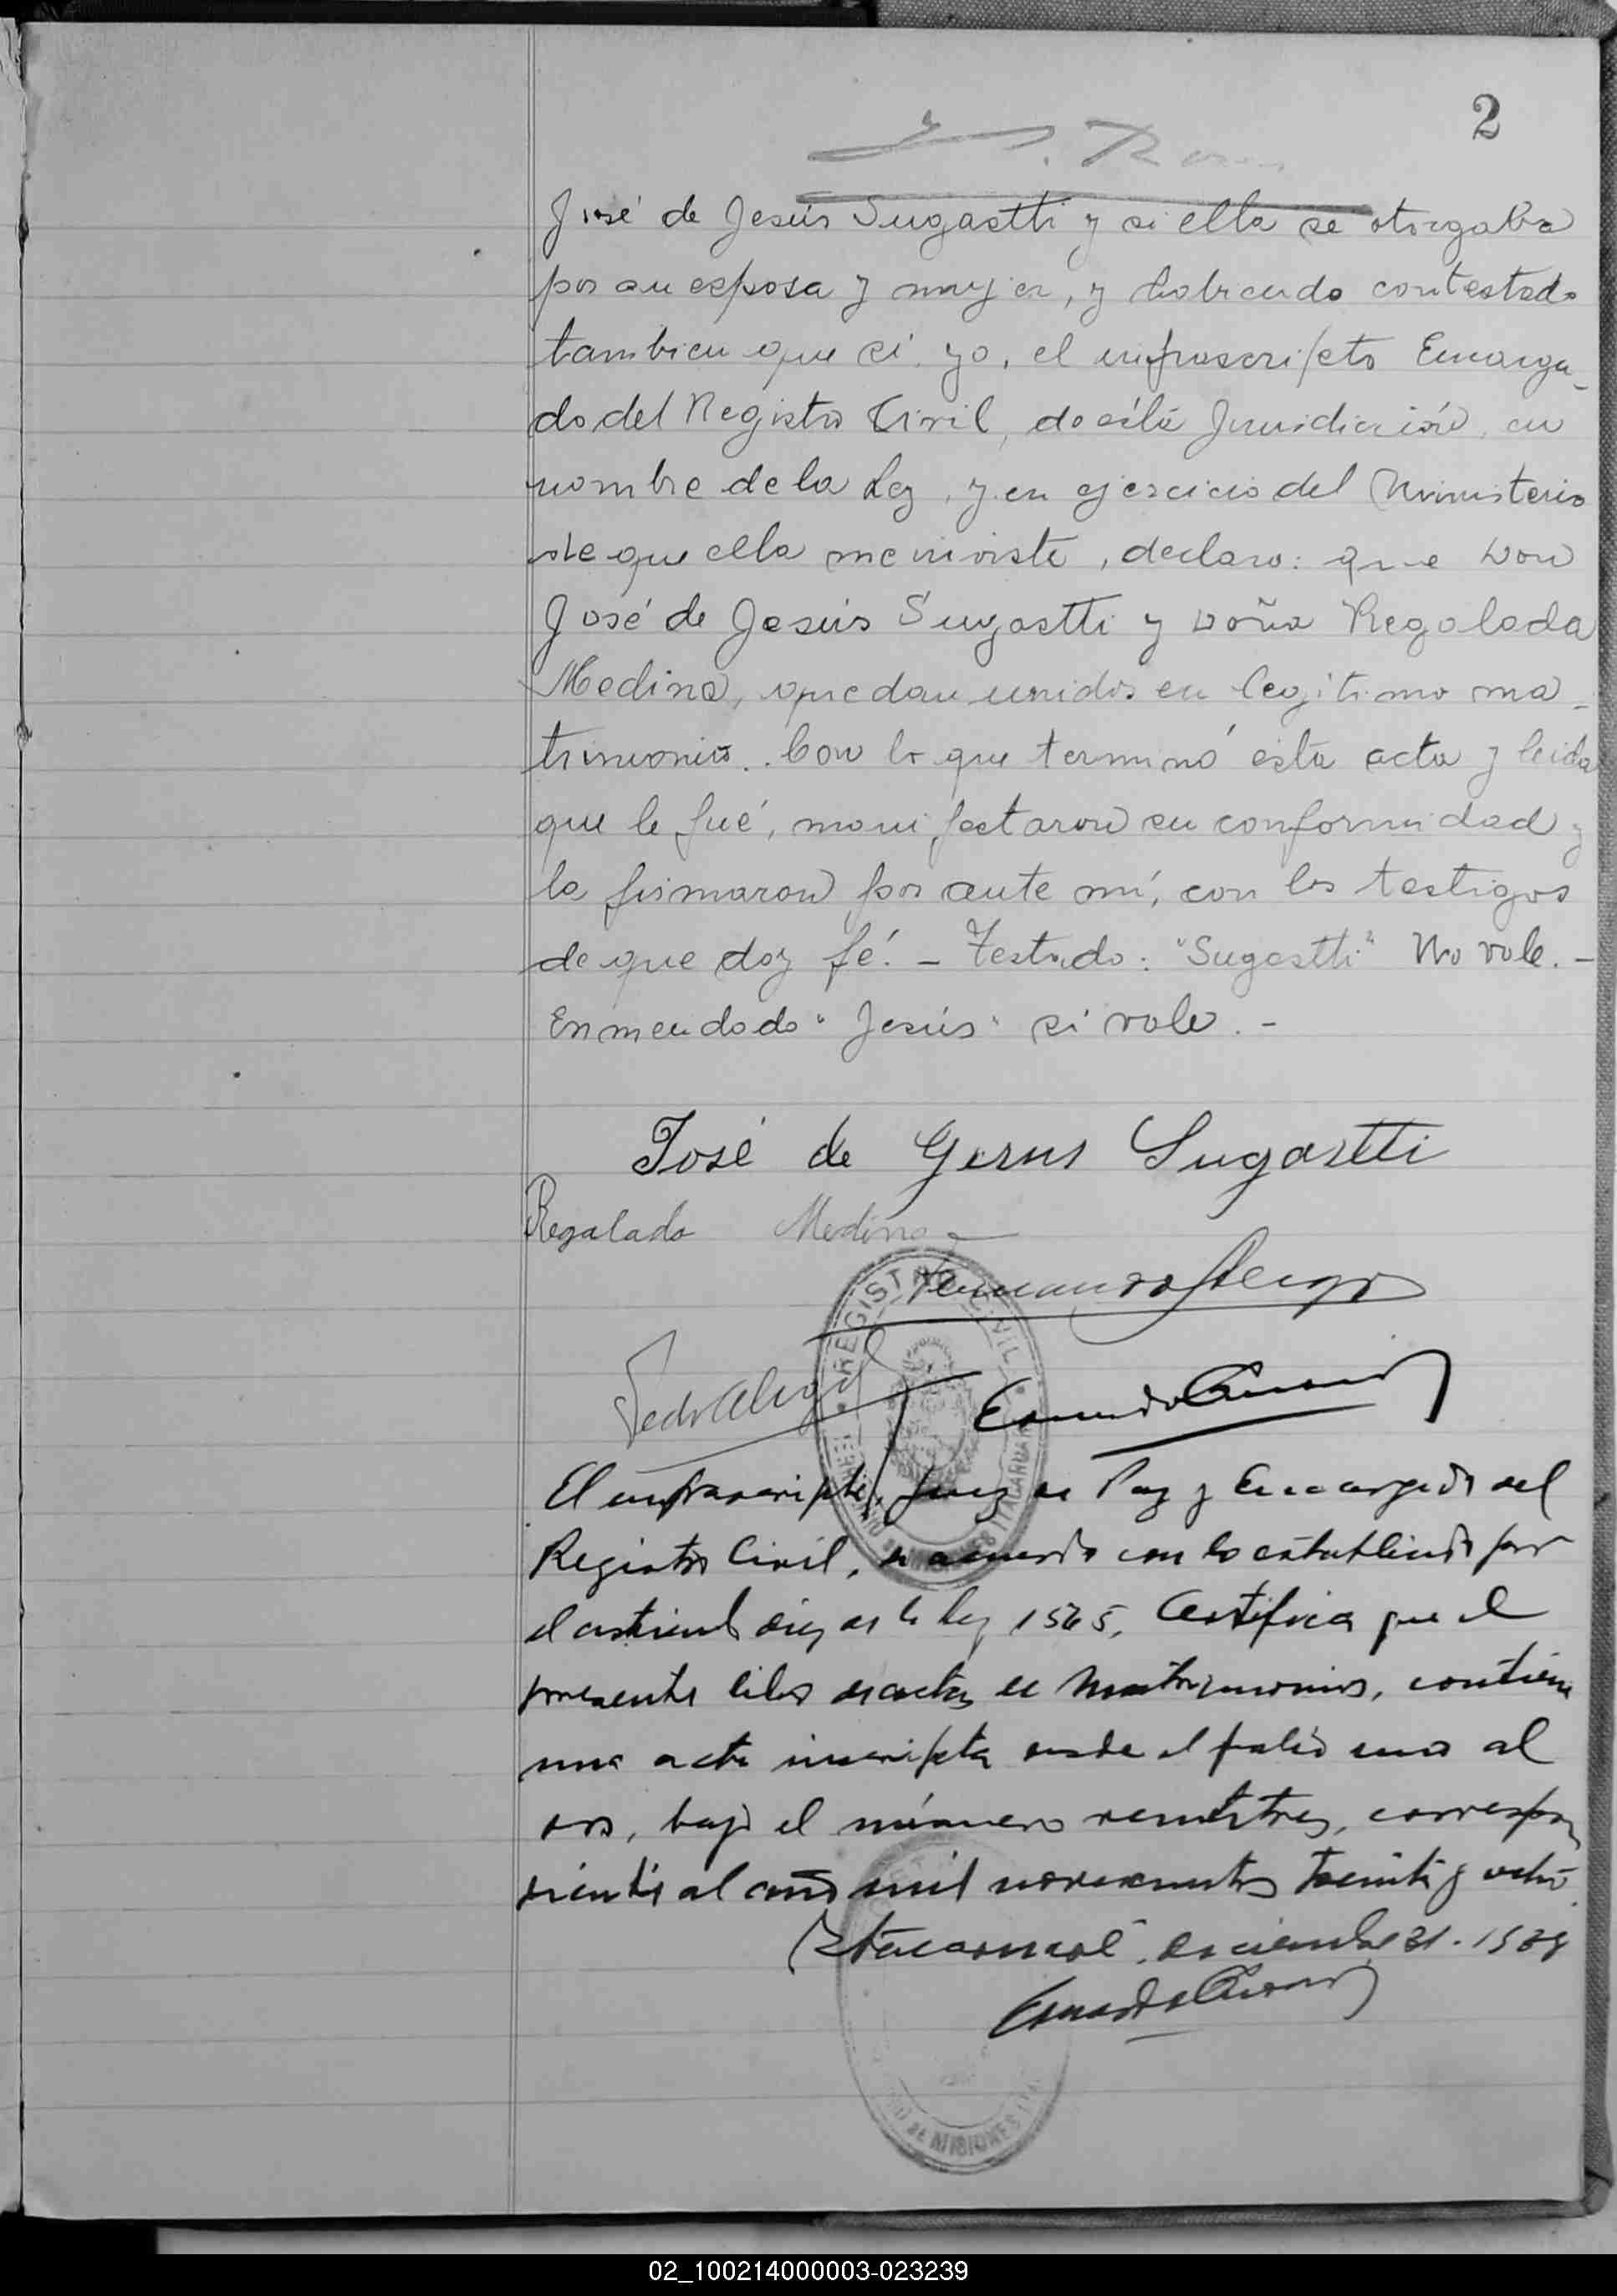 2
José de Jesús Sugastti y si ella se otorgaba
por su esposa y mujer, y habiendo contestado
tambien que si. yo, el infrascripto Encarga-
do del Registro Civil, de ésta Jurisdicción, en
nombre de la Ley, y en ejercicio del Ministerio
de que ella me inviste, declaro: que Don
José de Jesús Sugastti y Doña Regalada
Medina, quedan unidos en legitimo ma-
trimonio.. Con lo que terminó esta acta y leida
que le fué, manifestaron su conformidad y
la firmaron por ante mí, con los testigos
de que doy fé. - Testado: "Sugastti" No vale. -
Enmendado "Jesús" si vale. -
José de Gesus Sugastti
Regalada Medina
REGISTRO CIVIL
El infrascripto, Juez de Paz y Encargado del
Registro Civil, de acuerdo con lo establecido por
el articulo diez de la ley 1565, Certifica que el
presente libro de actas de Matrimonios, contiene
una acta inscripta desde el folio uno al
dos, bajo el número veintitres, correspon
diente al año mil novecientos treinta y ocho
Itacaruaré, diciembre 31. 1938
DE MISIONES
02_100214000003-023239